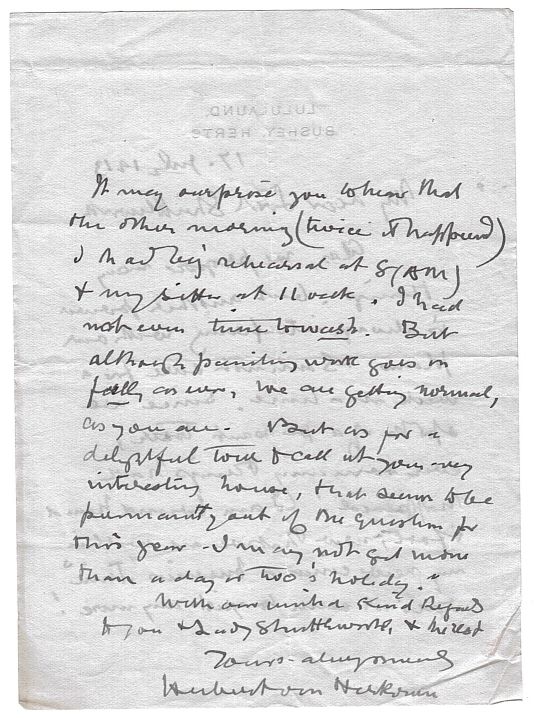 It may surprise you to hear that
the other morning (twice it happened)
I had big rehearsal at 8 (AM)
& my sitter at 11 oclk. I had
not even time to wash. But
although painting work goes on
fully as ever, we are getting normal,
as you are. But as for a
delightful tour & call at your very
interesting house, that seems to be
permanently out of the question for
this year - I may not get more
than a day or two's holiday."
With our united kind Regards
to you & Lady Shuttleworth, & the rest
Yours always sincerely
Hubert von Herkomer
LULULAUND,
BUSHEY, HERTS
17. July 1912